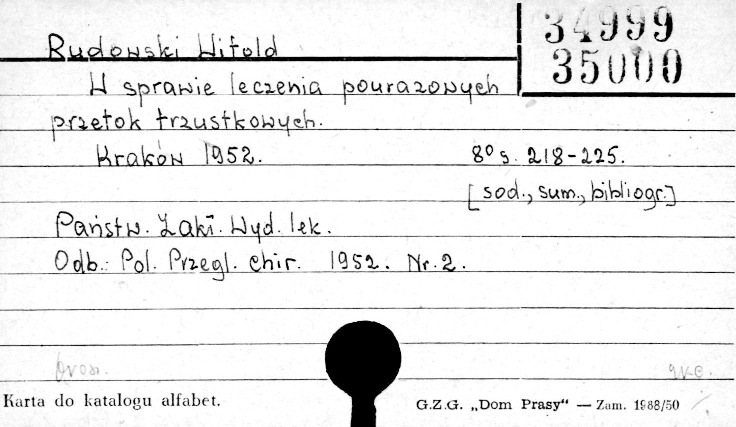 34999
35000
Rudowski Witold
W sprawie leczenia pourazowych
przetok trzustkowych.
Kraków 1952. 8° s. 218-225.
[sod., sum., bibliogr.]
Państw. Zakł. Wyd. lek.
Odb.: Pol. Przegl. chir. 1952. Nr. 2.
Karta do katalogu alfabet. G.Z.G. „Dom Prasy“ — Zam. 1988/50